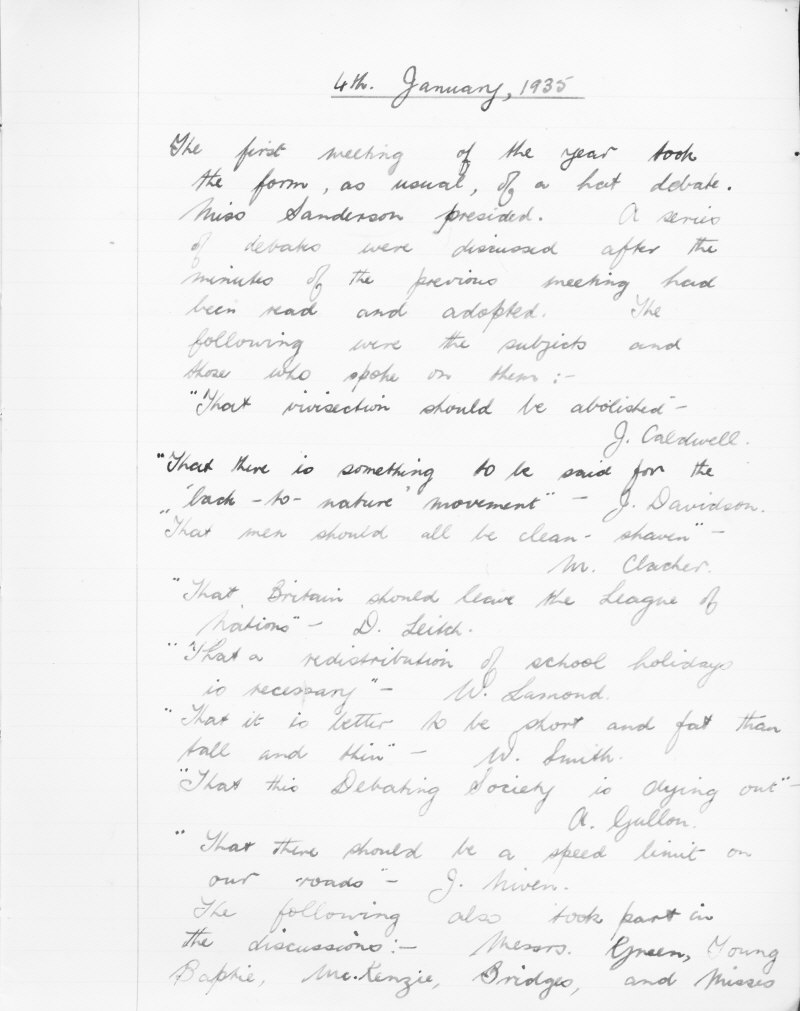 4th. January, 1935
The first meeting of the year took
the form, as usual, of a hat debate.
Miss Sanderson presided. A series
of debates were discussed after the
minutes of the previous meeting had
been read and adopted. The
following were the subjects and
those who spoke on them :-
"That vivisection should be abolished" -
J. Caldwell.
"That there is something to be said for the
'back-to-nature' movement" - J. Davidson.
"That men should all be clean-shaven" -
M. Clacher.
"That Britain should leave the League of
Nations" - D. Leitch.
"That a redistribution of school holidays
is necessary" - W. Lamond.
"That it is better to be short and fat than
tall and thin" - W. Smith.
"That this Debating Society is dying out" -
A. Gullon.
"That there should be a speed limit on
our roads" - J. Niven.
The following also took part in
the discussions :- Messrs. Green, Young
Baptie, McKenzie, Bridges, and Misses